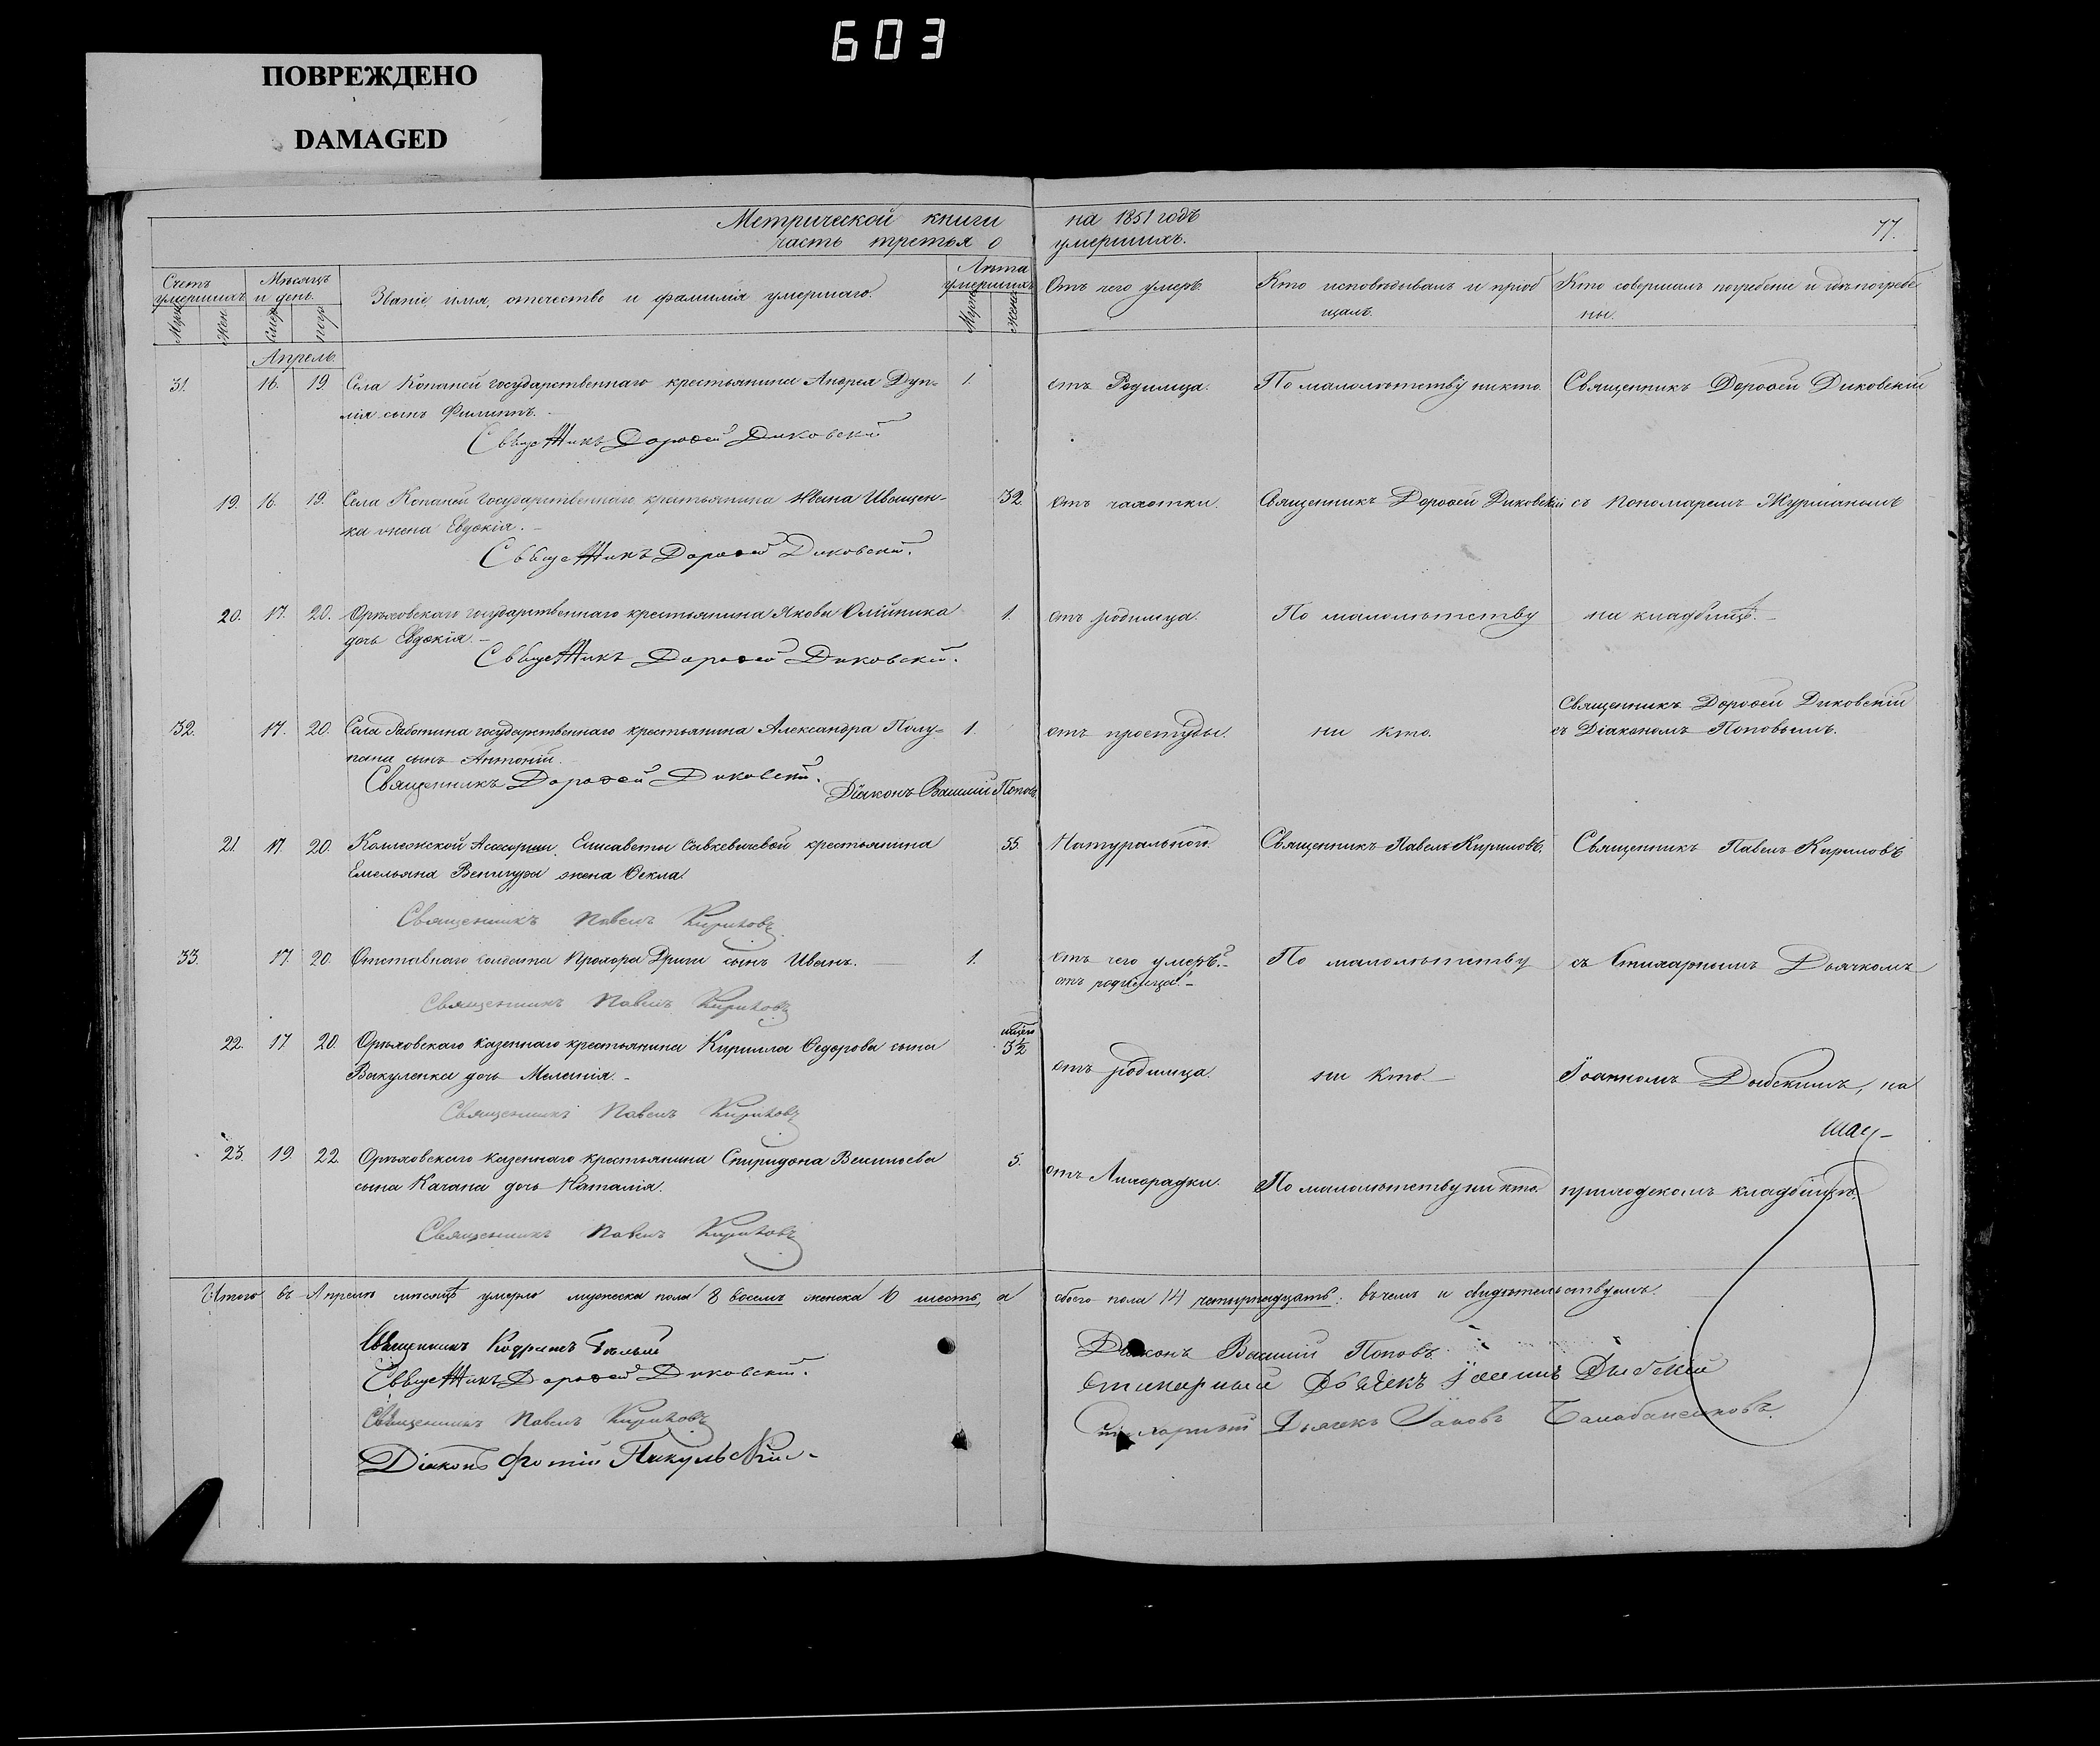 603
ПОВРЕЖДЕНО
DAMAGED
Метрической книги на 1851 годъ
часть третья о умершихъ.
77.
Счетъ умершихъ
Муж
Жен
Мѣсяцъ и день.
Смер
погр
Званіе, имя, отчество и фамилія умершаго.
Лѣта умершихъ
Муж
Жен
Отъ чего умеръ.
Кто исповѣдывалъ и приоб
щалъ.
Кто совершалъ погребеніе и гдѣ погребе
ны.
Апрель.
31. 16. 19. Села Копаней государственнаго крестьянина Андрея Дуп- 1. отъ Родимца. По малолѣтству никто. Священникъ Дорофей Диковскій
лія сынъ Филиппъ.
Священникъ Дорофей Диковскій
19. 16. 19. Села Копаней государственнаго крестьянина Ивана Иващен- 32. отъ чахотки. Священникъ Дорофей Диковскій съ пономаремъ Журманомъ
ка жена Евдокія.
Священникъ Дорофей Диковскій.
20. 17. 20. Орѣховскаго государственнаго крестьянина Якова Олійника 1. отъ родимца. По малолѣтству на кладбищѣ.
дочь Евдокія.
Священникъ Дорофей Диковскій.
Священникъ Дорофей Диковскій
32. 17. 20. Села Работина государственнаго крестьянина Александра Полу- 1. отъ простуды. ни кто. съ Діакономъ Поповымъ.
пана сынъ Антоній.
Священникъ Дорофей Диковскій.
Діаконъ Василій Поповъ
21. 17. 20. Коллежской Асесорши Елисаветы Савкевичевой крестьянина 55. Натуральной. Священникъ Павелъ Кириловъ. Священникъ Павелъ Кириловъ
Емельяна Венигура жена Фекла.
Священникъ Павелъ Кириловъ
33. 17. 20. Отставнаго солдата Прохора Дриги сынъ Иванъ. 1. отъ чего умеръ. По малолѣтству съ Стихарнымъ Дьячкомъ
отъ родимца.
Священникъ Павелъ Кириловъ
22. 17. 20. Орѣховскаго казеннаго крестьянина Кирилла Федорова сына 3½ отъ родимца. ни кто. Іоанномъ Дыбскимъ, на
Вакуленка дочь Меланія.
Священникъ Павелъ Кириловъ
23. 19. 22. Орѣховскаго казеннаго крестьянина Спиридона Васильева 5. отъ Лихорадки. По малолѣтству ни кто. приходскомъ кладбищѣ.
сына Качана дочь Наталія.
Священникъ Павелъ Кириловъ
Итого въ Апрелѣ мѣсяцѣ умерло мужеска пола 8 восемь женска 6 шесть, а обоего пола 14 четырнадцать. въ чемъ и свидѣтельствуемъ.
Священникъ Кодратъ Бѣлый
Діаконъ Василій Поповъ.
Священникъ Дорофей Диковскій.
Стихарный Дьячекъ Іоаннъ Дыбскій
Священникъ Павелъ Кириловъ
Стихарный Дьячекъ Іаковъ Балабаненковъ
Діаконъ Фотій Пикульскій